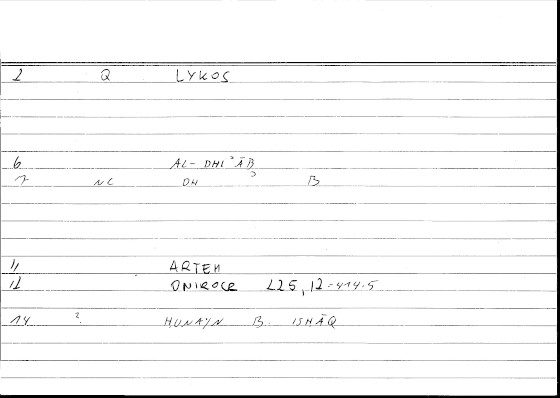 2 Q LYKOS
6 AL-DHIʾĀB
7 NC DH ʾ B
11 ARTEM
12 ONIROCR 225,12-414.5
14 ?. ḤUNAYN B. ISHĀQ